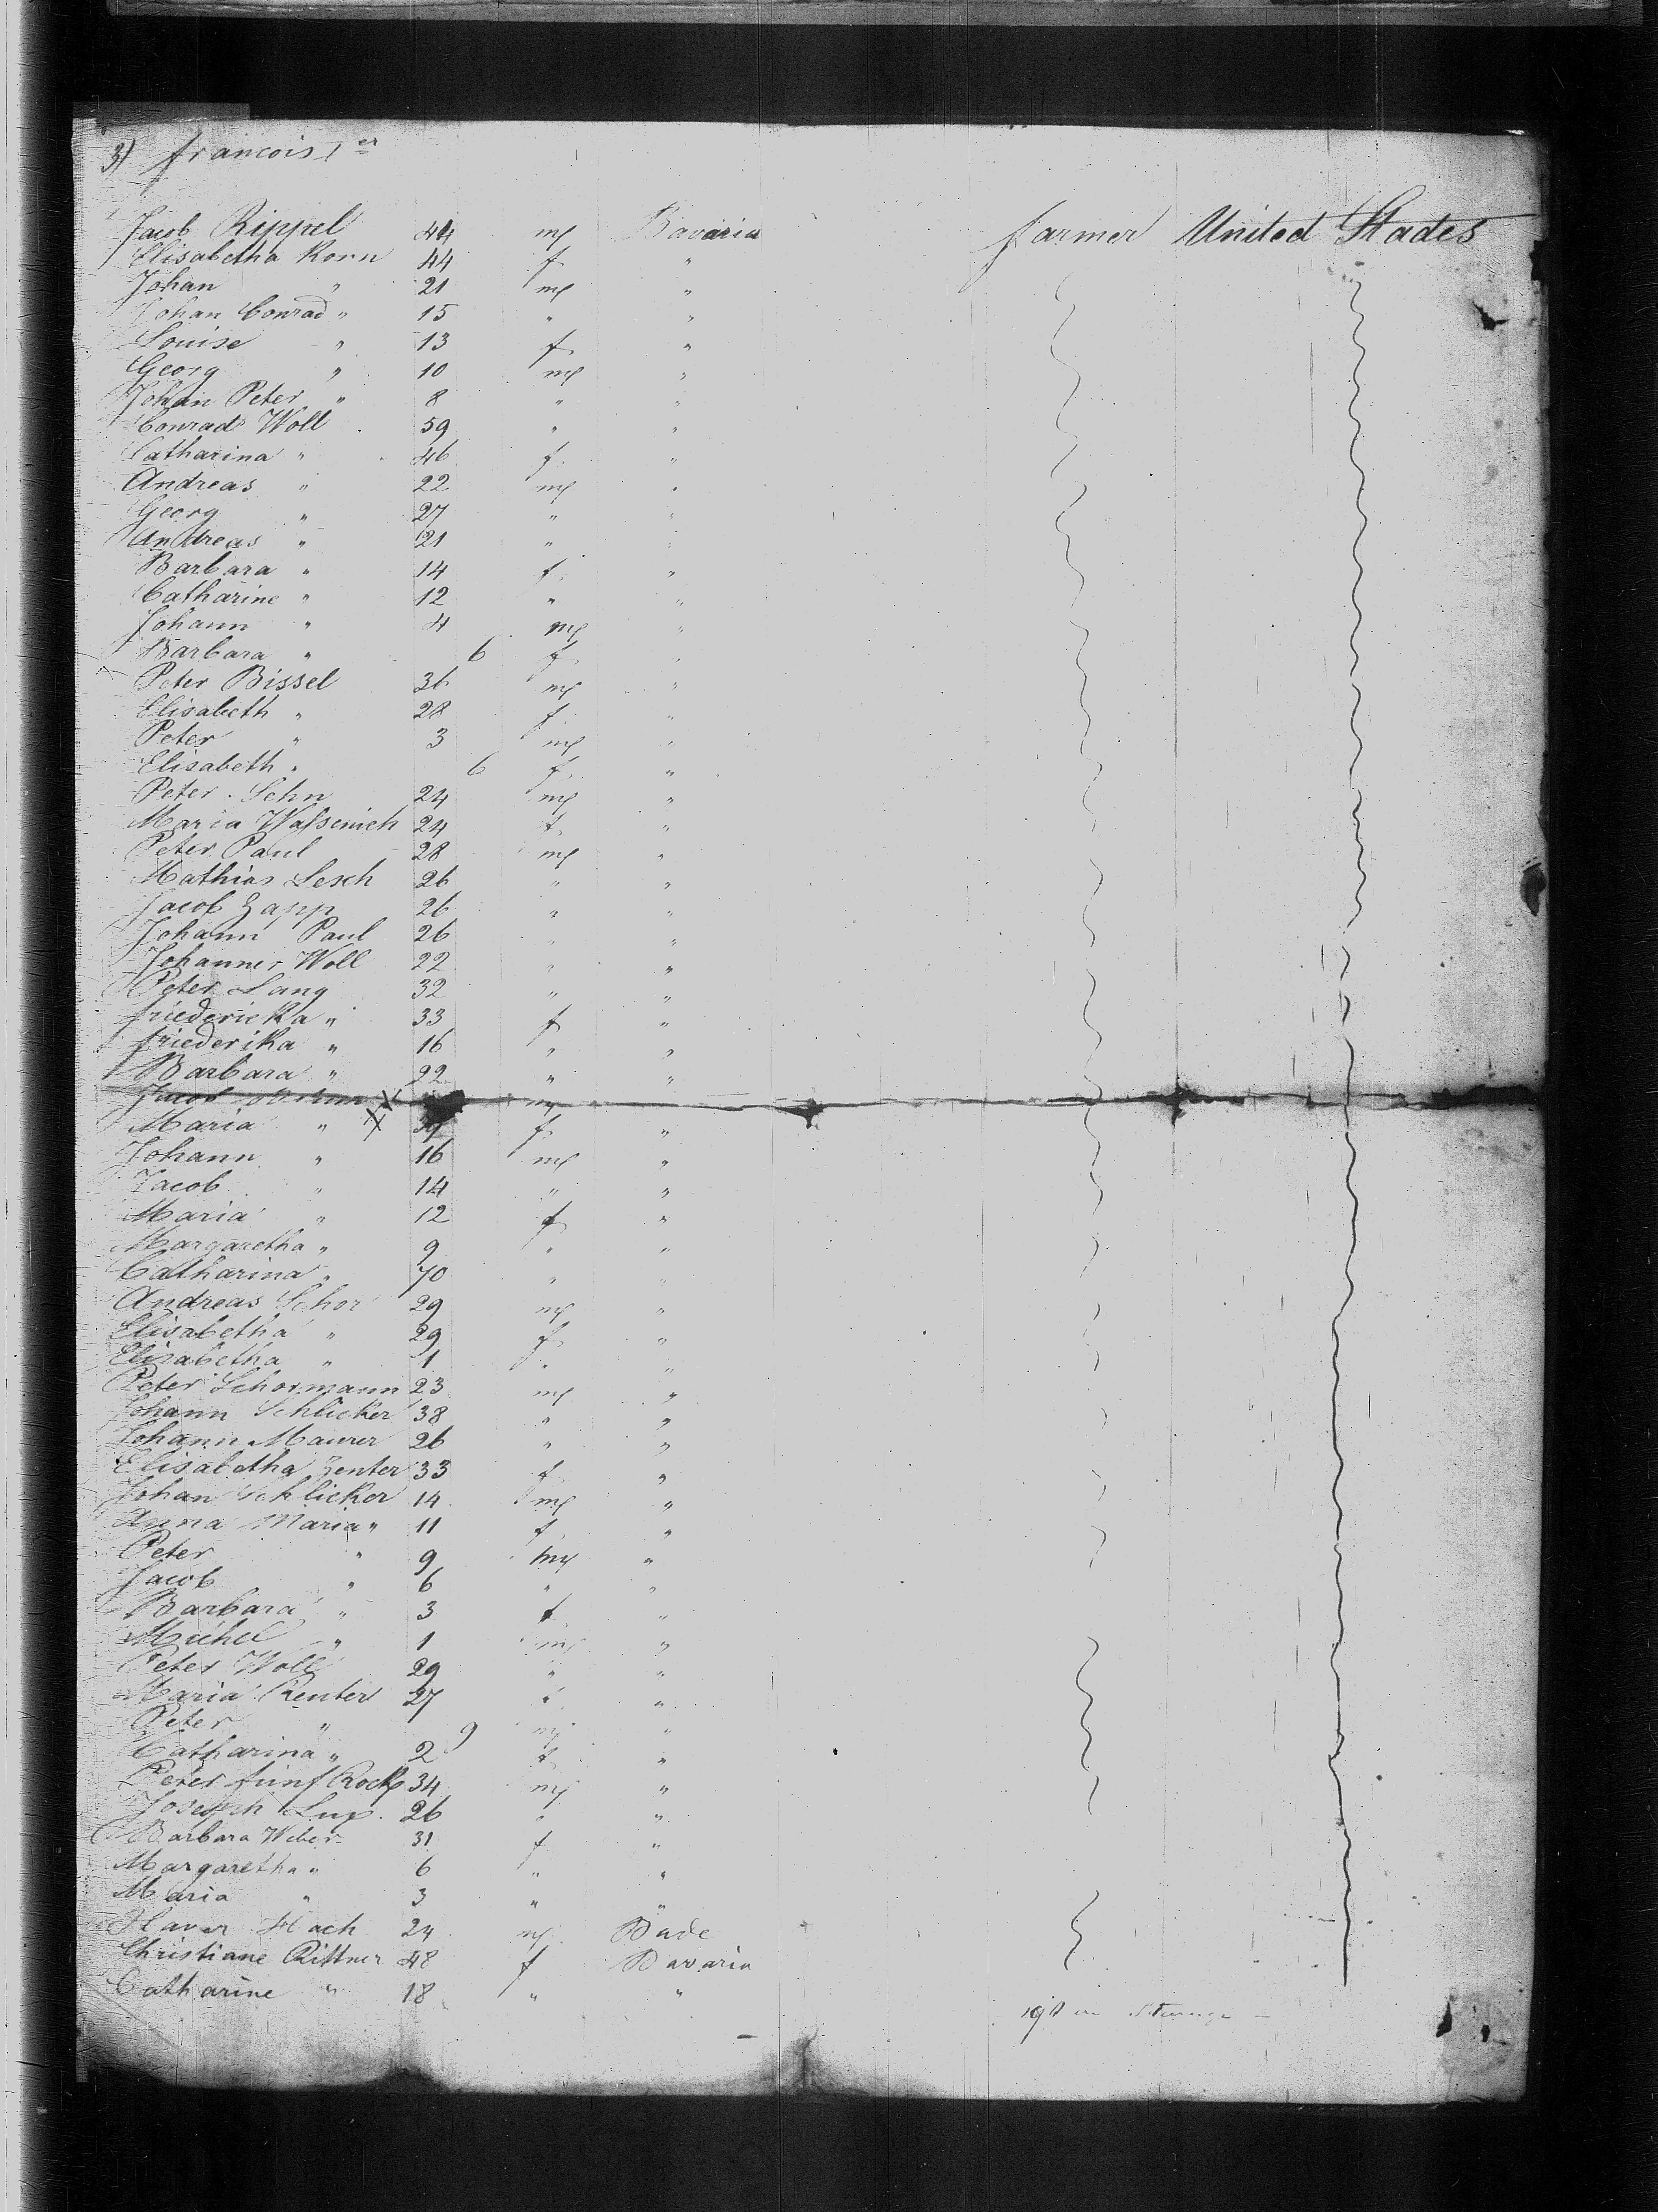 3) francois 1er
Jacob Rippel 44 m Bavaria farmer United Stades
Elisabetha Korn 44 f "
Johan " 21 m "
Johan Conrad " 15 " "
Louise " 13 f "
Georg " 10 m "
Johan Peter " 8 " "
Conrad Woll 59 " "
Catharina " 46 f "
Andreas " 22 m "
Georg " 27 " "
Andreas " 21 "
Barbara " 14 f "
Catharine " 12 " "
Johann " 4 m "
Barbara " 6 f "
Peter Bissel 36 m "
Elisabeth " 28 f "
Peter " 3 m "
Elisabeth " 6 f "
Peter Sehn 24 m "
Maria Wassenich 24 f "
Peter Paul 28 m "
Mathias Lesch 26 " "
Jacob Zapp 26 " "
Johann Paul 26 " "
Johannes Woll 22 " "
Peter Lang 32 " "
friedericka " 33 f "
friederika " 16 " "
Barbara " 22 " "
Jacob m
Maria " f "
Johann " 16 m "
Jacob " 14 " "
Maria " 12 f "
Margaretha " 9 " "
Catharina " 70 " "
Andreas Schor 29 m "
Elisabetha " 29 f "
Elisabetha " 1 " "
Peter Schormann 23 m "
Johann Schlicker 38 " "
Johann Maurer 26 " "
Elisabetha Zenter 33 f "
Johan Schlicker 14 m "
Anna Maria " 11 f "
Peter " 9 m "
Jacob " 6 " "
Barbara " 3 f "
Michel " 1 m "
Peter Woll 29 " "
Maria Renter 27 "
Peter " 9 m "
Catharina " 2 f "
Peter fünf Rock 34 m "
Joseph Lux 26 " "
Barbara Weber 31 f "
Margaretha " 6 " "
Maria " 3 " "
Xaver Hach 24 m Bade
Christiane Rittner 48 f Bavaria
Catharine " 18 " "
in